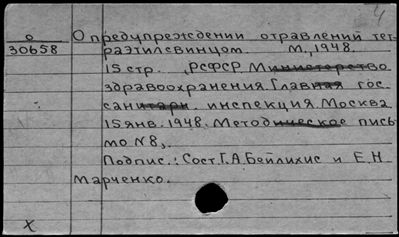 4
О О предупреждении отравлений тет-
30658 раэтилсвинцом. М., 1948.
15 стр. (РСФСР. Министерство
здравоохранения. Главная гос.
санитарн. инспекция. Москва
15 янв. 1948. Методическое пись-
мо N8).
Подпис.: Сост. Г.А. Бейлихис и Е.Н.
Марченко.
X